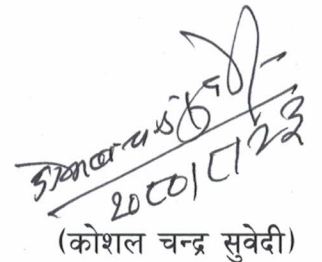 २०८०।८।२३
(कोशल चन्द्र सुवेदी)